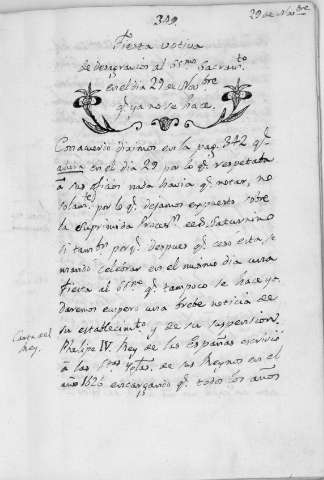 349.
29 de Nov.bre
Fiesta votiva
de desagravios al SSmo Sacram.to
en el dia 29 de Nov.bre
q.e ya no se hace.
Con acuerdo diximos en la pag. 342 q.e
en el dia 29 por lo q.e respetata
á sus oficios nada havia q.e notar, no
solam.te por lo q.e dejamos expuesto sobre
la suprimida Proces.n de S. Saturnino
si tamb.n porq.e despues q.e ceso esta, se
mandó celebrar en el mismo dia una
Fiesta al SSmo q.e tampoco se hace ya.
Daremos empero una brebe noticia de
su establecim.to y de su suspension.
Carta del
Rey.
Phelipe IV. Rey de las Españas escrivió
á las S.tas Igles.as de sus Reynos en el
año 1626 encargando q.e todos los años